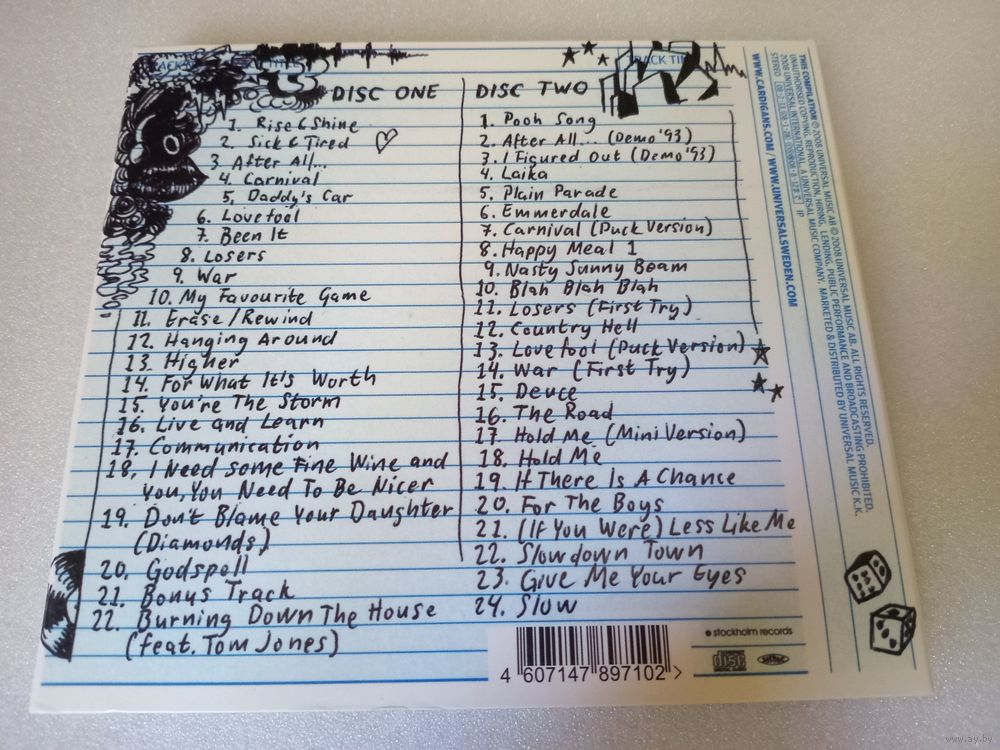 TRACK TI
DISC ONE
1. Rise & Shine
2. Sick & Tired
3 After All...
4. Carnival
5, Daddy's Car
6. Lovefool
7. Been It
8. Losers
9. War
10. My Favourite Game
11. Erase/Rewind
12. Hanging Around
13. Higher
14. For What It's Worth
15. You're The Storm
16. Live and Learn
17. Communication
18, I Need Some Fine Wine and
You, You Need To Be Nicer
19. Don't Blame Your Daughter
(Diamonds)
20. Godspell
21. Bonus Track
22. Burning Down The House
(feat. Tom Jones)
DISC TWO
1. Pooh Song
2. After All... (Demo '93)
3. I Figured Out (Demo '93)
4. Laika
5. Plain Parade
6. Emmerdale
7. Carnival (Puck Version)
8. Happy Meal 1
9. Nasty Sunny Beam
10. Blah Blah Blah
11. Losers (First Try)
12. Country Hell
13. Lovefool (Puck Version)
14. War (First Try)
15. Deuce
16. The Road
17. Hold Me (Mini Version)
18. Hold Me
19. If There Is A Chance
20. For The Boys
21. (If You Were) Less Like Me
22. Slowdown Town
23. Give Me Your Eyes
24. Slow
THIS COMPILATION ℗ 2008 UNIVERSAL MUSIC AB © 2008 UNIVERSAL MUSIC AB. ALL RIGHTS RESERVED.
UNAUTHORISED COPYING, REPRODUCTION, HIRING, LENDING, PUBLIC PERFORMANCE AND BROADCASTING PROHIBITED.
2008 UNIVERSAL INTERNATIONAL, A UNIVERSAL MUSIC COMPANY. MARKETED & DISTRIBUTED BY UNIVERSAL MUSIC K.K.
STEREO
WWW.CARDIGANS.COM / WWW.UNIVERSALSWEDEN.COM
stockholm records
4 607147 897102 >
www.ay.by